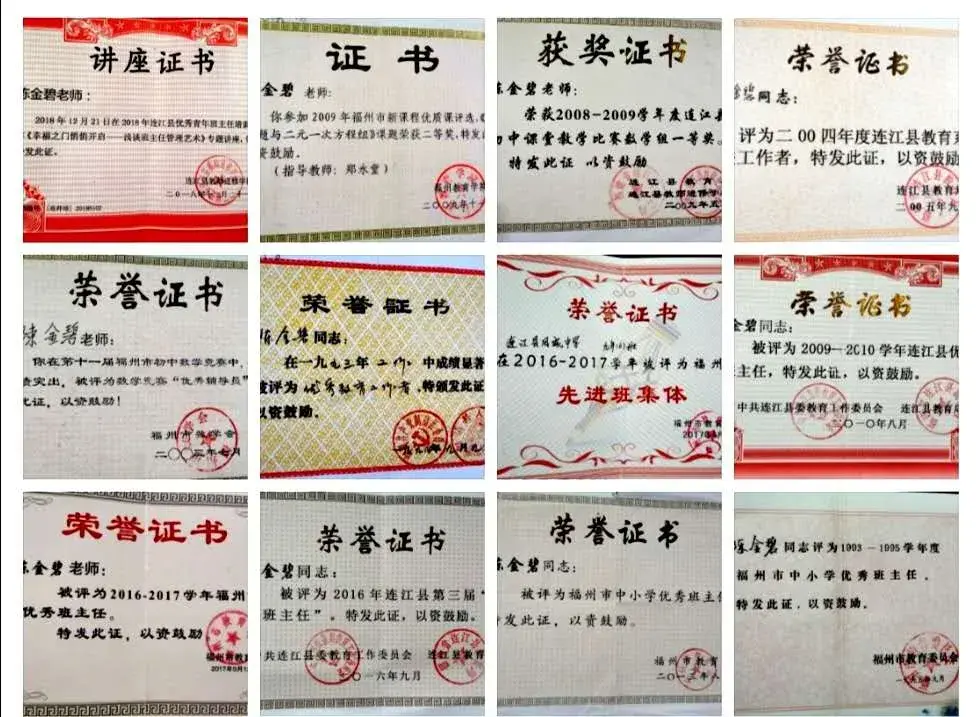 讲座证书
陈金碧老师：
2018年12月21日在2018年连江县优秀青年班主任培训
《幸福之门悄悄开启——浅谈班主任管理艺术》专题讲座，
发此证。
连江县教师进修学
二〇一八年
证书
金碧 老师：
你参加2009年福州市新课程优质课评选，《
题与二元一次方程组》课题荣获二等奖，特发
资鼓励。
（指导教师：郑水堂）
福州教育学院
二〇〇九年十
获奖证书
金碧老师：
荣获2008-2009学年度连江县
中课堂教学比赛数学组一等奖。
特发此证 以资鼓励
连江县教育
连江县教师进修学
二〇〇九年五
荣誉证书
金碧同志：
评为二00四年度连江县教育系
工作者，特发此证，以资鼓励
连江县教育
二00五年九
荣誉证书
陈金碧老师：
你在第十一届福州市初中数学竞赛中，
突出，被评为数学竞赛“优秀辅导员”
此证，以资鼓励！
福州市数学会
二〇〇三年七月
荣誉证书
陈金碧同志：
在一九九三年工作中成绩显著
被评为优秀教育工作者，特颁发此证
以资鼓励。
荣誉证书
在2016-2017学年被评为福州
先进班集体
福州市教育
2017年
荣誉证书
金碧同志：
被评为2009—2010学年连江县优
主任，特发此证，以资鼓励。
中共连江县委教育工作委员会 连江县教育局
二〇一〇年八月
荣誉证书
陈金碧老师：
被评为2016-2017学年福州
优秀班主任。
特发此证，以资鼓励
福州市教育
2017年9月
荣誉证书
金碧同志：
被评为2016年连江县第三届“
班主任”。特发此证，以资鼓励。
共连江县委教育工作委员会 连江县教育
〇一六年九月
荣誉证书
金碧同志：
被评为福州市中小学优秀班主任
发此证，以资鼓励。
福州市教育
二〇一三年八
陈金碧同志评为1993—1995学年度
福州市中小学优秀班主任。
特发此证，以资鼓励。
福州市教育委员会
一九九五年九月